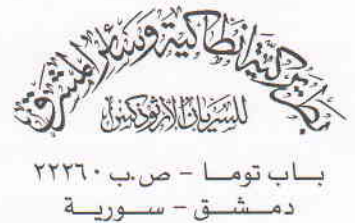 بطريركية انطاكية وسائر المشرق
للسريان الارثوذكس
بـاب تومـا - ص.ب ٢٢٢٦٠
دمـشـق - سـوريـة